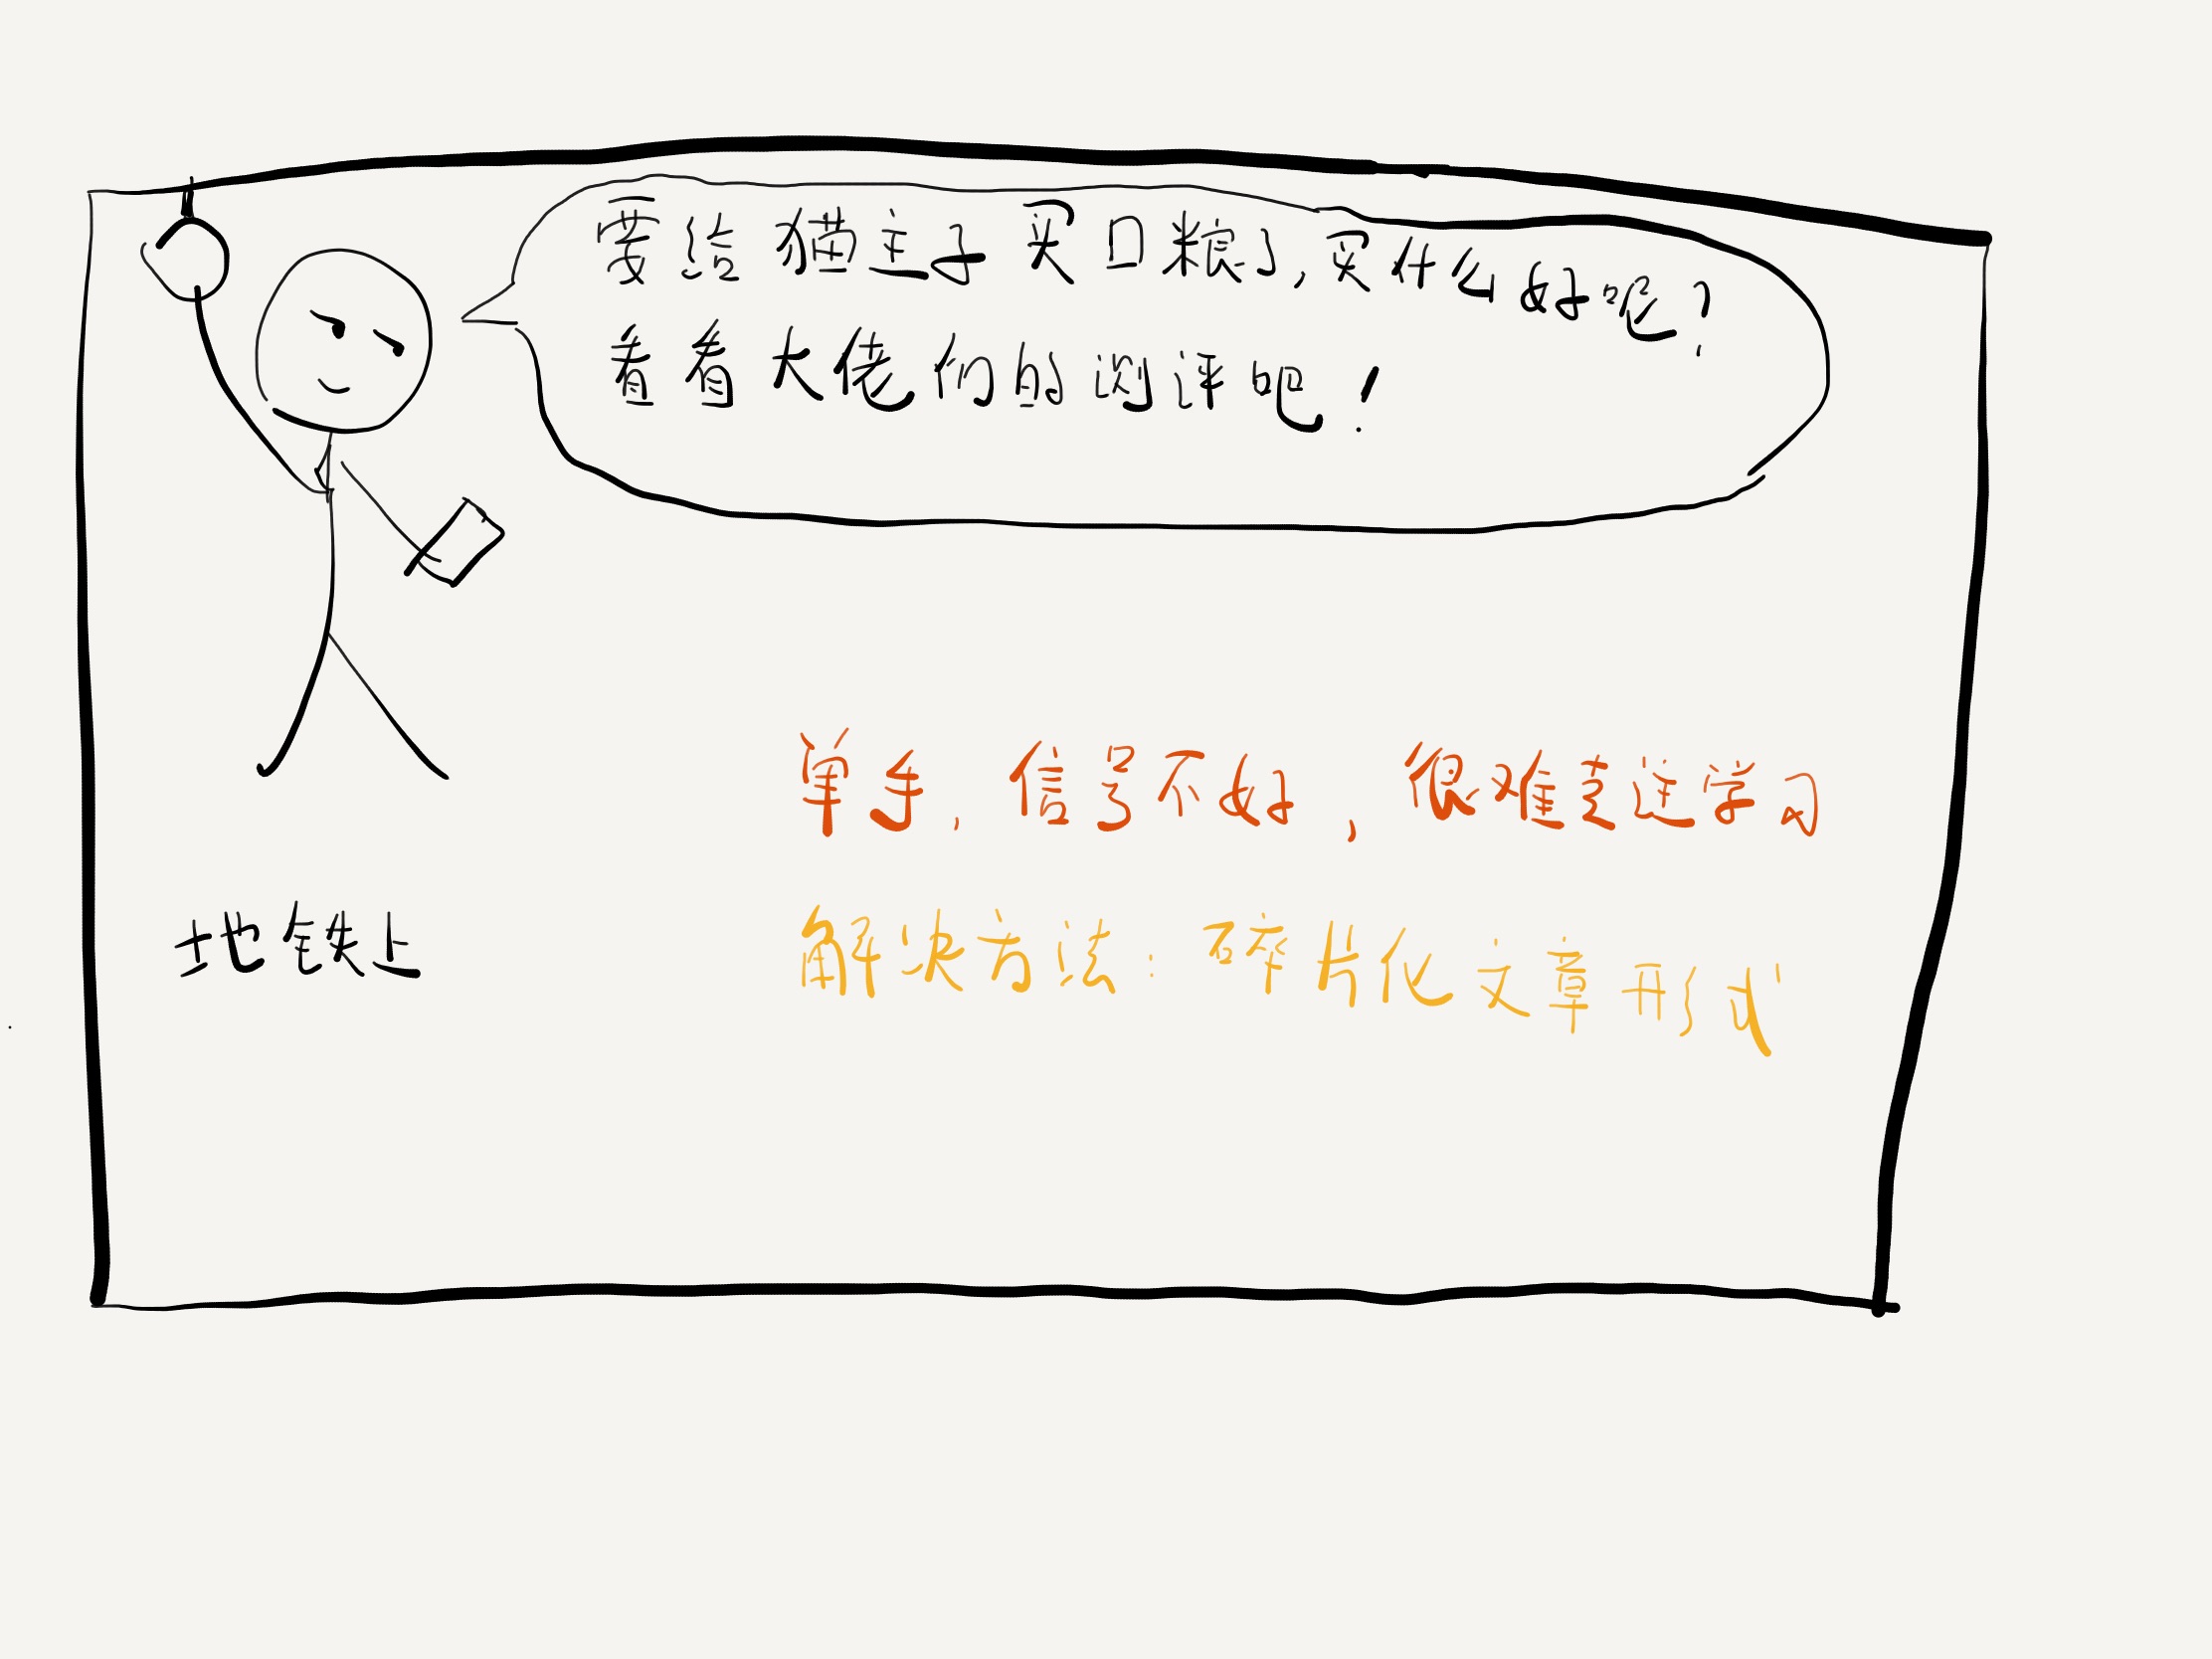 要给猫主子买口粮了,买什么好呢?
看看大佬们的测评吧!
单手,信号不好,很难系统学习
解决方法:碎片化文章形式
地铁上